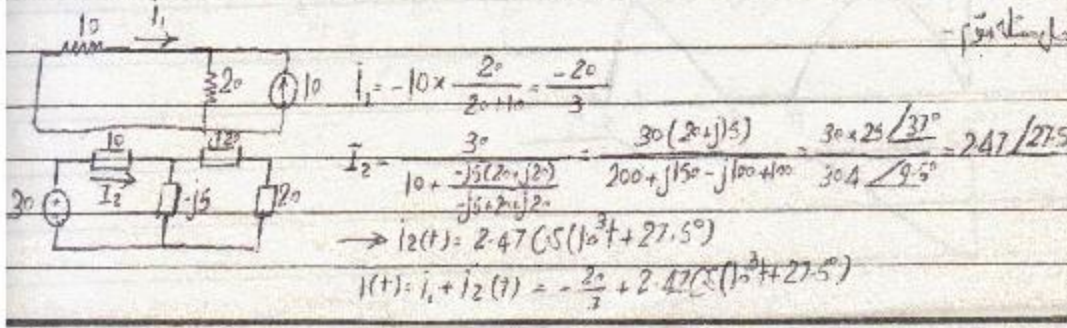 10 i₁
20 10 i₁ = -10 × 20/(20+10) = -20/3
10 j20
30 I₂ -j5 20 I₂ = 30/(10 + (-j5(20+j20))/(-j5+20+j20)) = 30(20+j15)/(200+j150-j100+100) = 30×25∠37°/304∠9.5° = 2.47∠27.5
→ i₂(t) = 2.47 Cos(10³t+27.5°)
i(t) = i₁ + i₂(t) = -20/3 + 2.47 Cos(10³t+27.5°)